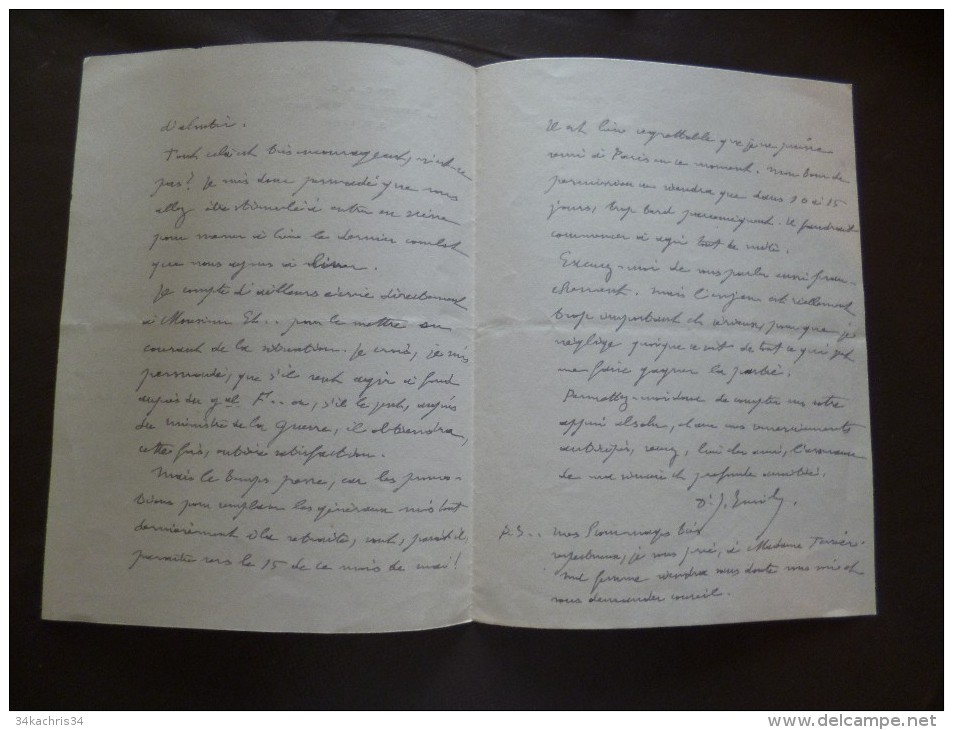 d'aboutir.
Tout cela est très encourageant, n'est-ce
pas? Je suis donc persuadé que vous
allez être stimulé à entrer en scène
pour mener à bien le dernier combat
que nous ayons à livrer.
Je compte d'ailleurs écrire directement
à Monsieur Et.. pour le mettre au
courant de la situation. Je crois, je suis
persuadé, que s'il veut agir à fond
auprès du gal F.. ou, s'il le peut, auprès
du ministre de la Guerre, il obtiendra,
cette fois, entière satisfaction.
Mais le temps presse, car les promo-
tions pour remplacer les généraux mis tout
dernièrement à la retraite, vont, paraît-il,
paraître vers le 15 de ce mois de mai!
Il est bien regrettable que je ne puisse
venir à Paris en ce moment. Mon tour de
permission ne viendra que dans 10 à 15
jours, trop tard par conséquent. Il faudrait
commencer à agir tout de suite.
Excusez-moi de vous parler aussi fran-
chement. Mais l'enjeu est réellement
trop important et sérieux, pour que je
néglige quoique ce soit de tout ce qui peut
me faire gagner la partie.
Permettez-moi donc de compter sur votre
appui absolu, et avec mes remerciements
anticipés, recevez, bien cher ami, l'assurance
de ma sincère et profonde amitié.
Dr J. Emily.
P.S.. Mes hommages très
respectueux, je vous prie, à Madame
Ma femme viendra sans doute vous voir et
vous demander conseil.
34kachris34
delcampe.net